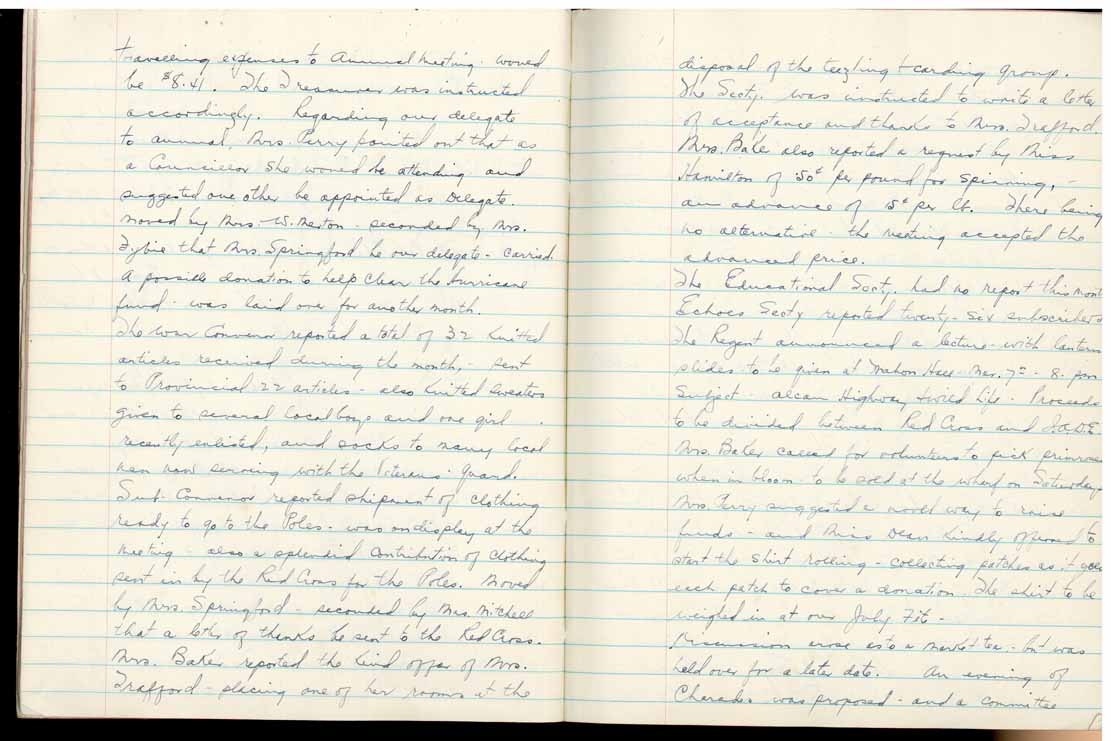 travelling expenses to Annual Meeting would
be $8.41. The Treasurer was instructed
accordingly. Regarding our delegate
to annual, Mrs. Perry pointed out that as
a Councillor she would be attending and
suggested one other be appointed as Delegate.
Moved by Mrs. W. Norton - seconded by Mrs.
that Mrs. Springford be our delegate - Carried.
A possible donation to help Clear the Hurricane
fund - was laid over for another month.
The War Convenor reported a total of 32 Knitted
articles received during the month, - sent
to Provincial 22 articles - also Knitted Sweaters
given to several local boys and one girl
recently enlisted, and socks to many local
men now serving with the Veterans Guard.
Sub. Convenor reported shipment of clothing
ready to go to the Poles - was on display at the
meeting - also a splendid contribution of clothing
sent in by the Red Cross for the Poles. Moved
by Mrs. Springford - seconded by Mrs. Mitchell
that a letter of thanks be sent to the Red Cross.
Mrs. Baker reported the kind offer of Mrs.
Trafford - placing one of her rooms at the
disposal of the teezling + carding group.
The Secty. was instructed to write a letter
of acceptance and thanks to Mrs. Trafford.
Mrs. Baker also reported a request by Miss
Hamilton of 50¢ per pound for spinning, -
an advance of 5¢ per lb. There being
no alternative - the meeting accepted the
advanced price.
The Educational Secty. had no report this month
Echoes Secty reported twenty-six subscribers
The Regent announced a lecture - with lantern
slides to be given at Mahon Hall Mar. 7th - 8. pm
Subject - Alcan Highway + wild Life - Proceeds
to be divided between Red Cross and I.O.D.E.
Mrs. Baker called for volunteers to pick primroses
when in bloom - to be sold at the wharf on Saturdays
Mrs. Perry suggested a novel way to raise
funds - and Miss Dean kindly offered to
start the shirt rolling - collecting patches as it goes
each patch to cover a donation. The shirt to be
weighed in at our July Fête -
Discussion arose as to a market tea - but was
held over for a later date. An evening of
Charades was proposed - and a committee